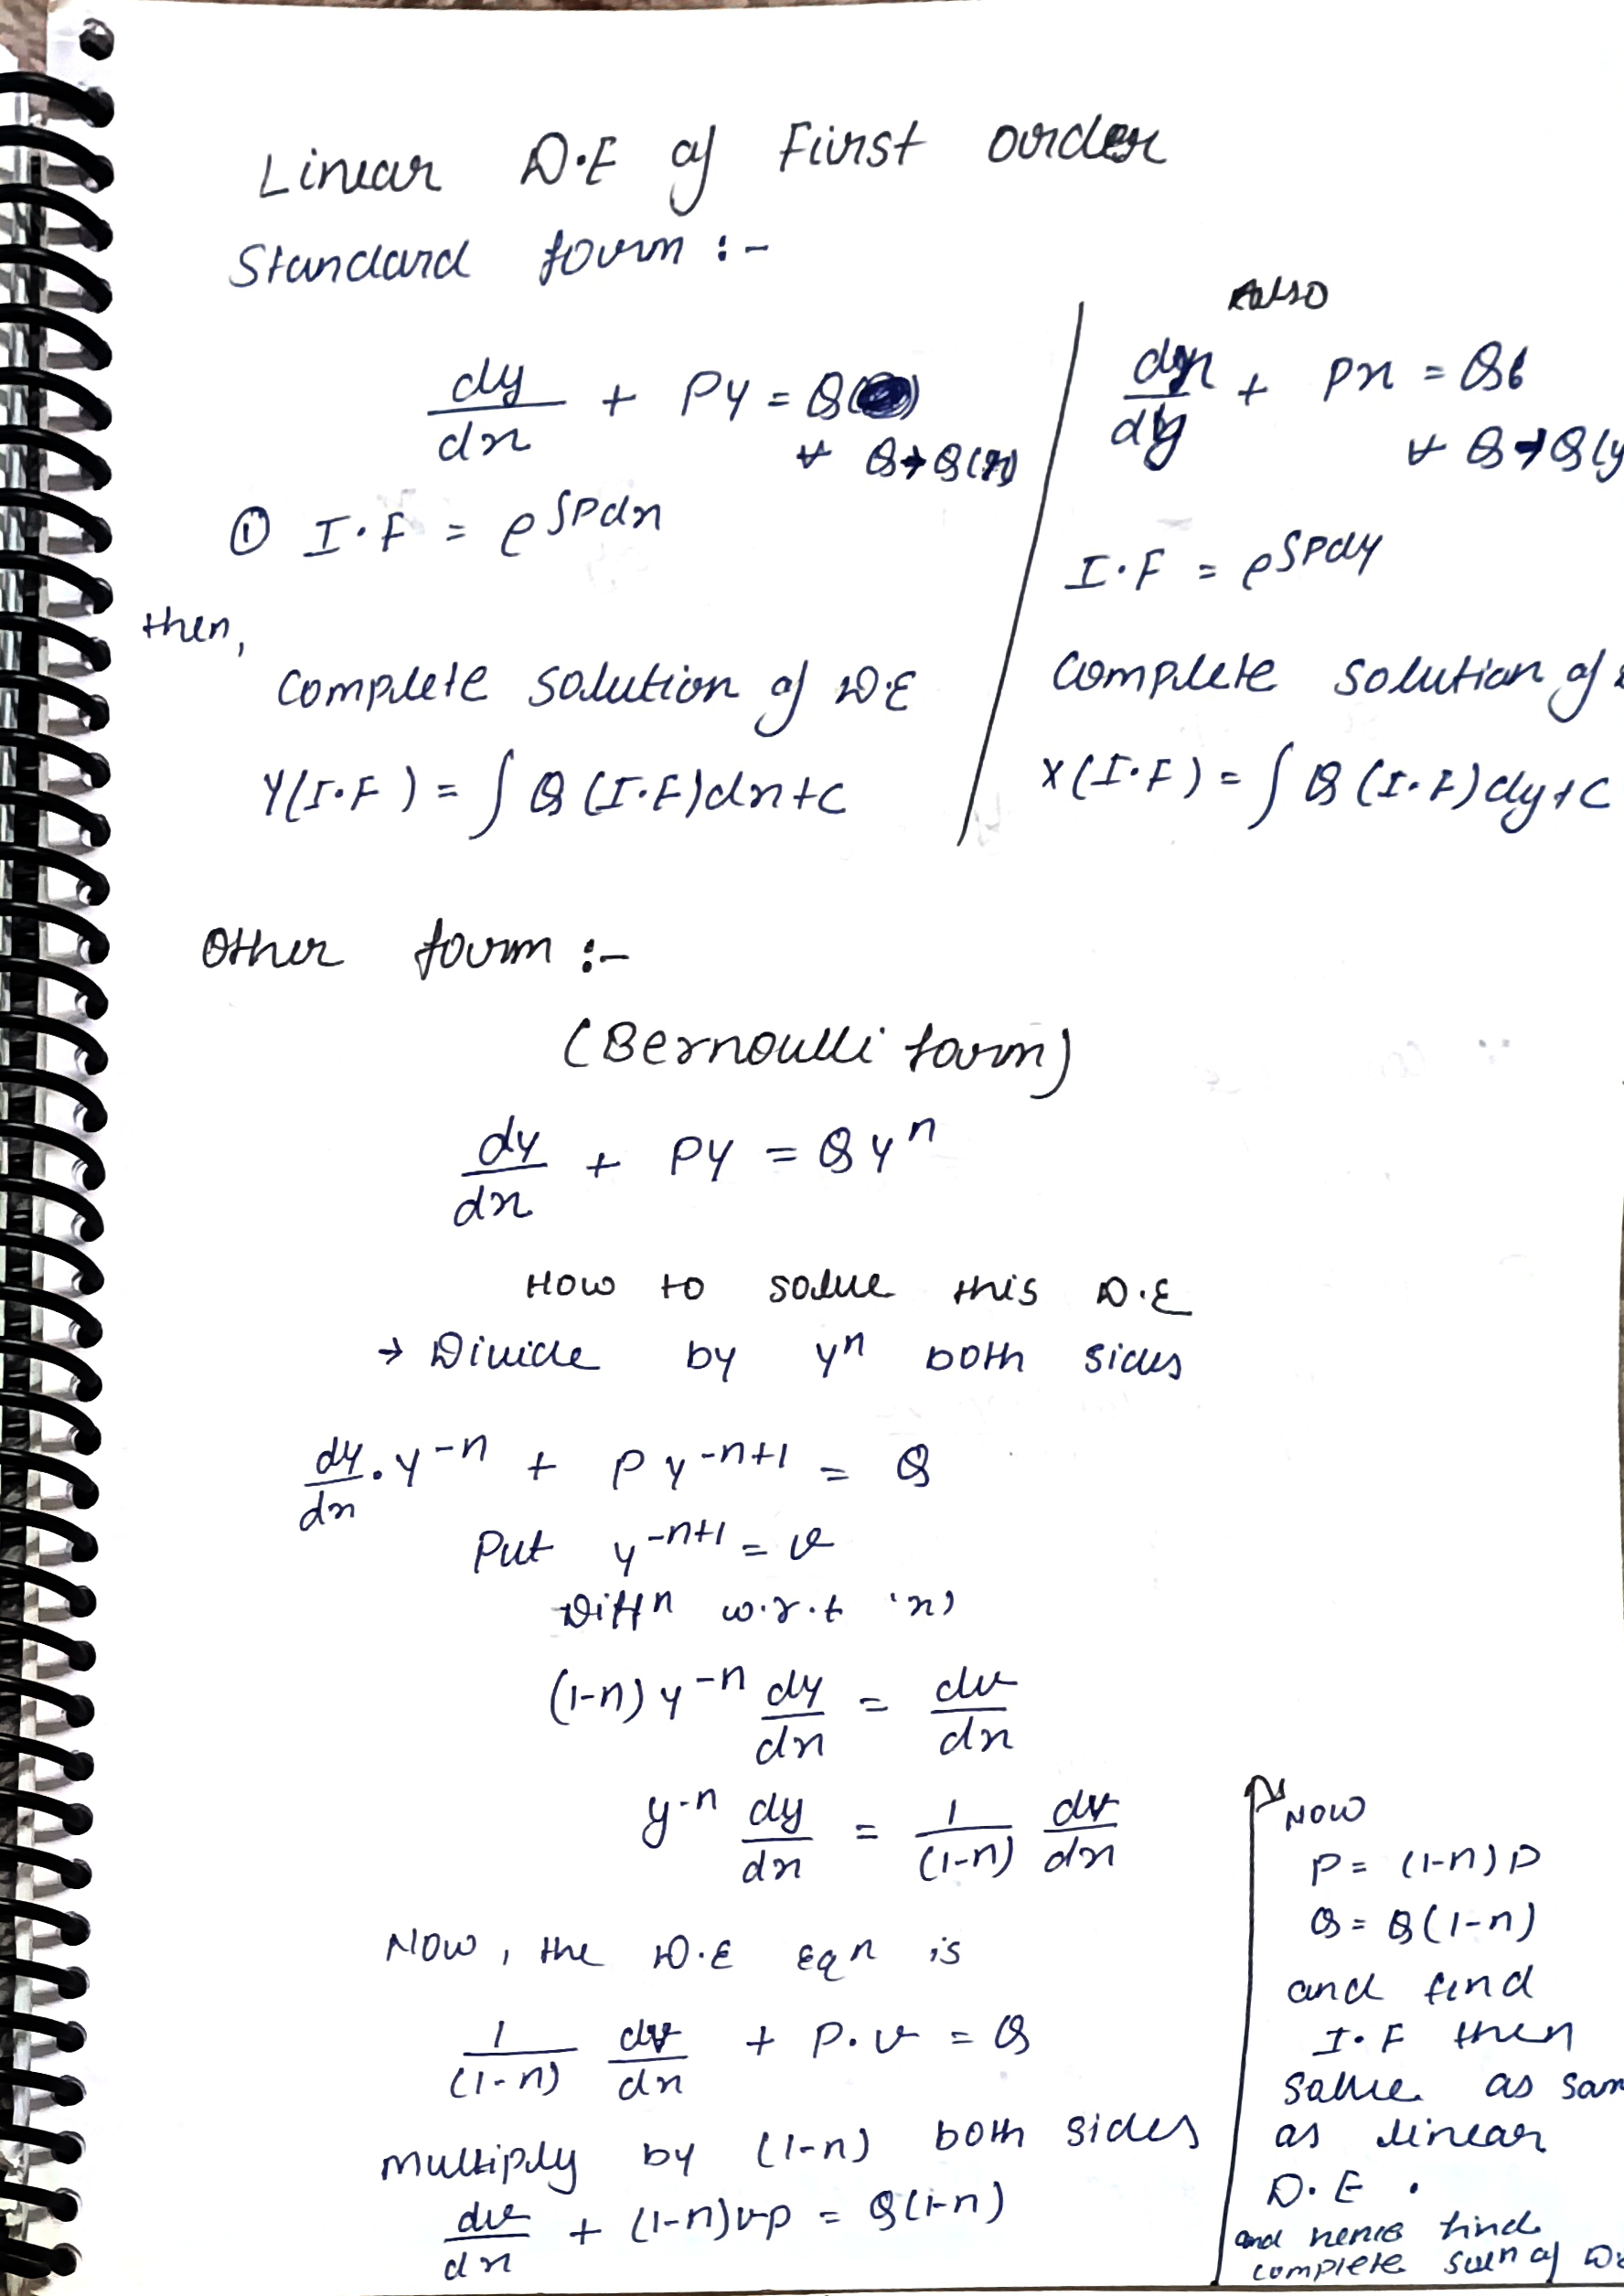 Linear D.E of First order
Standard form :-
dy/dx + Py = Q
∀ Q→Q(x)
① I.F = e^∫Pdx
then,
Complete solution of D.E
Y(I.F) = ∫ Q (I.F)dx+C
Also
dx/dy + Px = Q
∀ Q→Q(y
I.F = e^∫Pdy
Complete solution of
X(I.F) = ∫ Q (I.F)dy+C
Other form :-
(Bernoulli form)
dy/dx + Py = Qy^n
How to solve this D.E
→ Divide by y^n both sides
dy/dx . y^-n + P y^-n+1 = Q
Put y^-n+1 = v
Diff^n w.r.t 'x'
(1-n) y^-n dy/dx = dv/dx
y^-n dy/dx = 1/(1-n) dv/dx
Now, the D.E Eq^n is
1/(1-n) dv/dx + P.v = Q
multiply by (1-n) both sides
dv/dx + (1-n)vp = Q(1-n)
Now
P = (1-n)P
Q = Q(1-n)
and find
I.F then
solve as sam
as linear
D.E .
and hence find
complete sol^n of D.